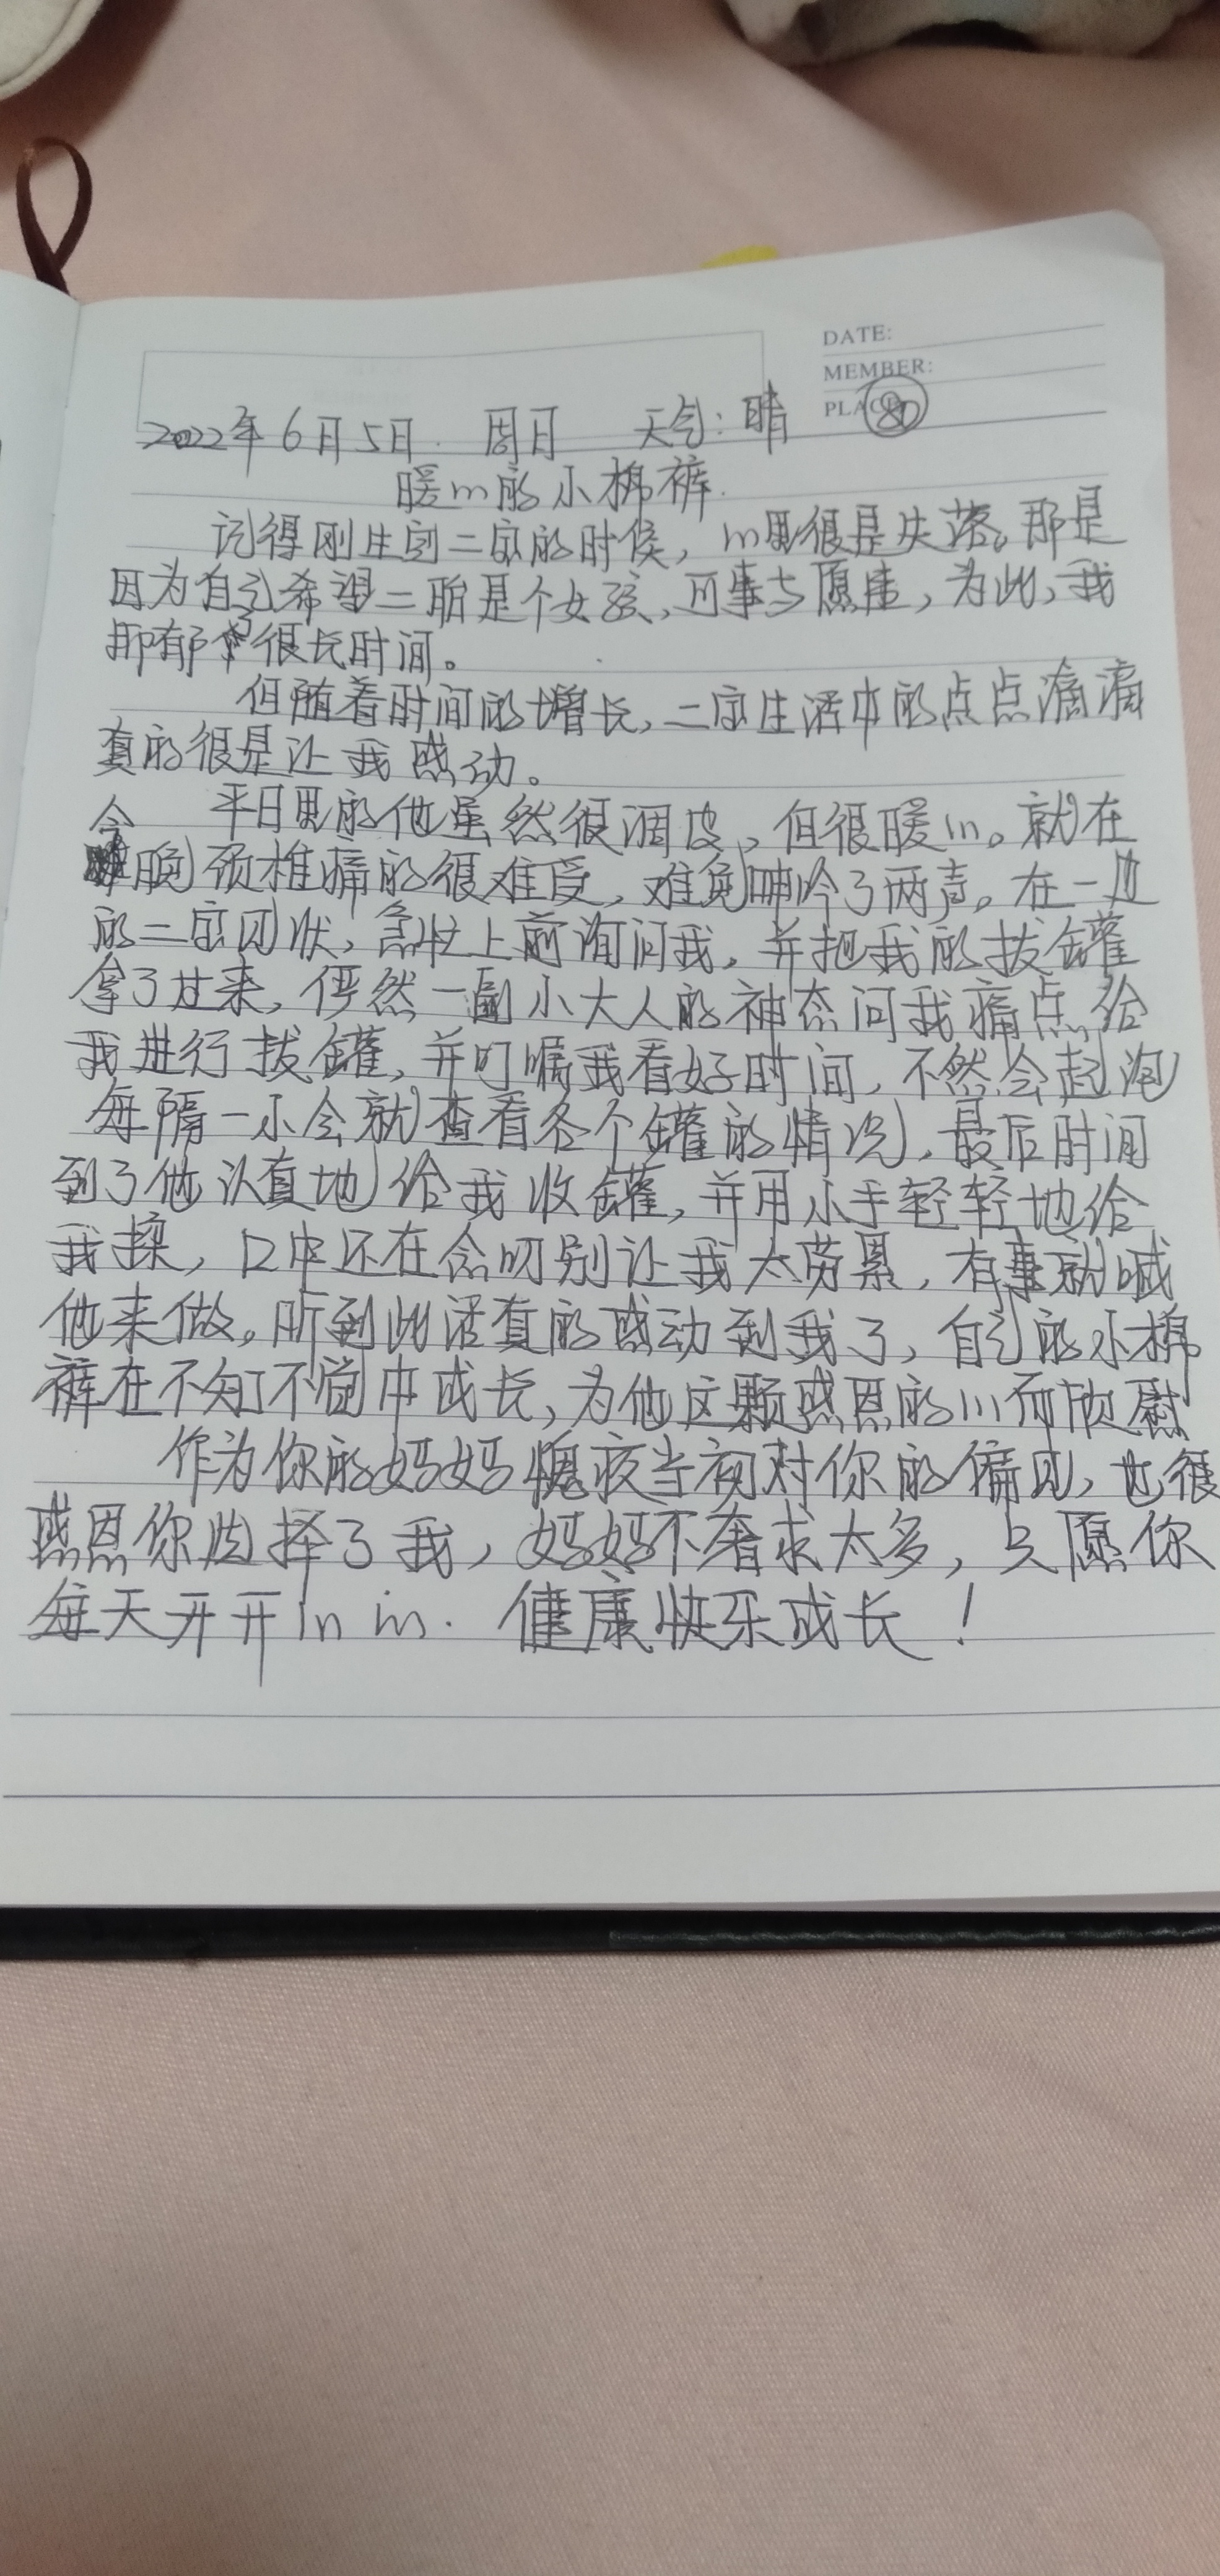 DATE:
MEMBER:
PLACE: 80
2022年6月5日. 周日 天气: 晴
暖心的小棉裤.
记得刚生完二宝的时候, 心里很是失落。那是
因为自己希望二胎是个女孩, 可事与愿违, 为此, 我
郁郁了很长时间。
但随着时间的增长, 二宝生活中的点点滴滴
真的很是让我感动。
平日里的他虽然很调皮, 但很暖心。就在
今晚颈椎痛的很难受, 难免呻吟了两声。在一边
的二宝见状, 急忙上前询问我, 并把我的拔罐
拿了过来, 俨然一副小大人的神态问我痛点, 给
我进行拔罐, 并叮嘱我看好时间, 不然会起泡
每隔一小会就查看各个罐的情况, 最后时间
到了他认真地给我收罐, 并用小手轻轻地给
我揉, 口中还在念叨别让我太劳累, 有事就喊
他来做。听到此话真的感动到我了, 自己的小棉
裤在不知不觉中成长, 为他这颗感恩的心而欣慰
作为你的妈妈愧疚当初对你的偏见, 也很
感恩你选择了我, 妈妈不奢求太多, 只愿你
每天开开心心. 健康快乐成长!